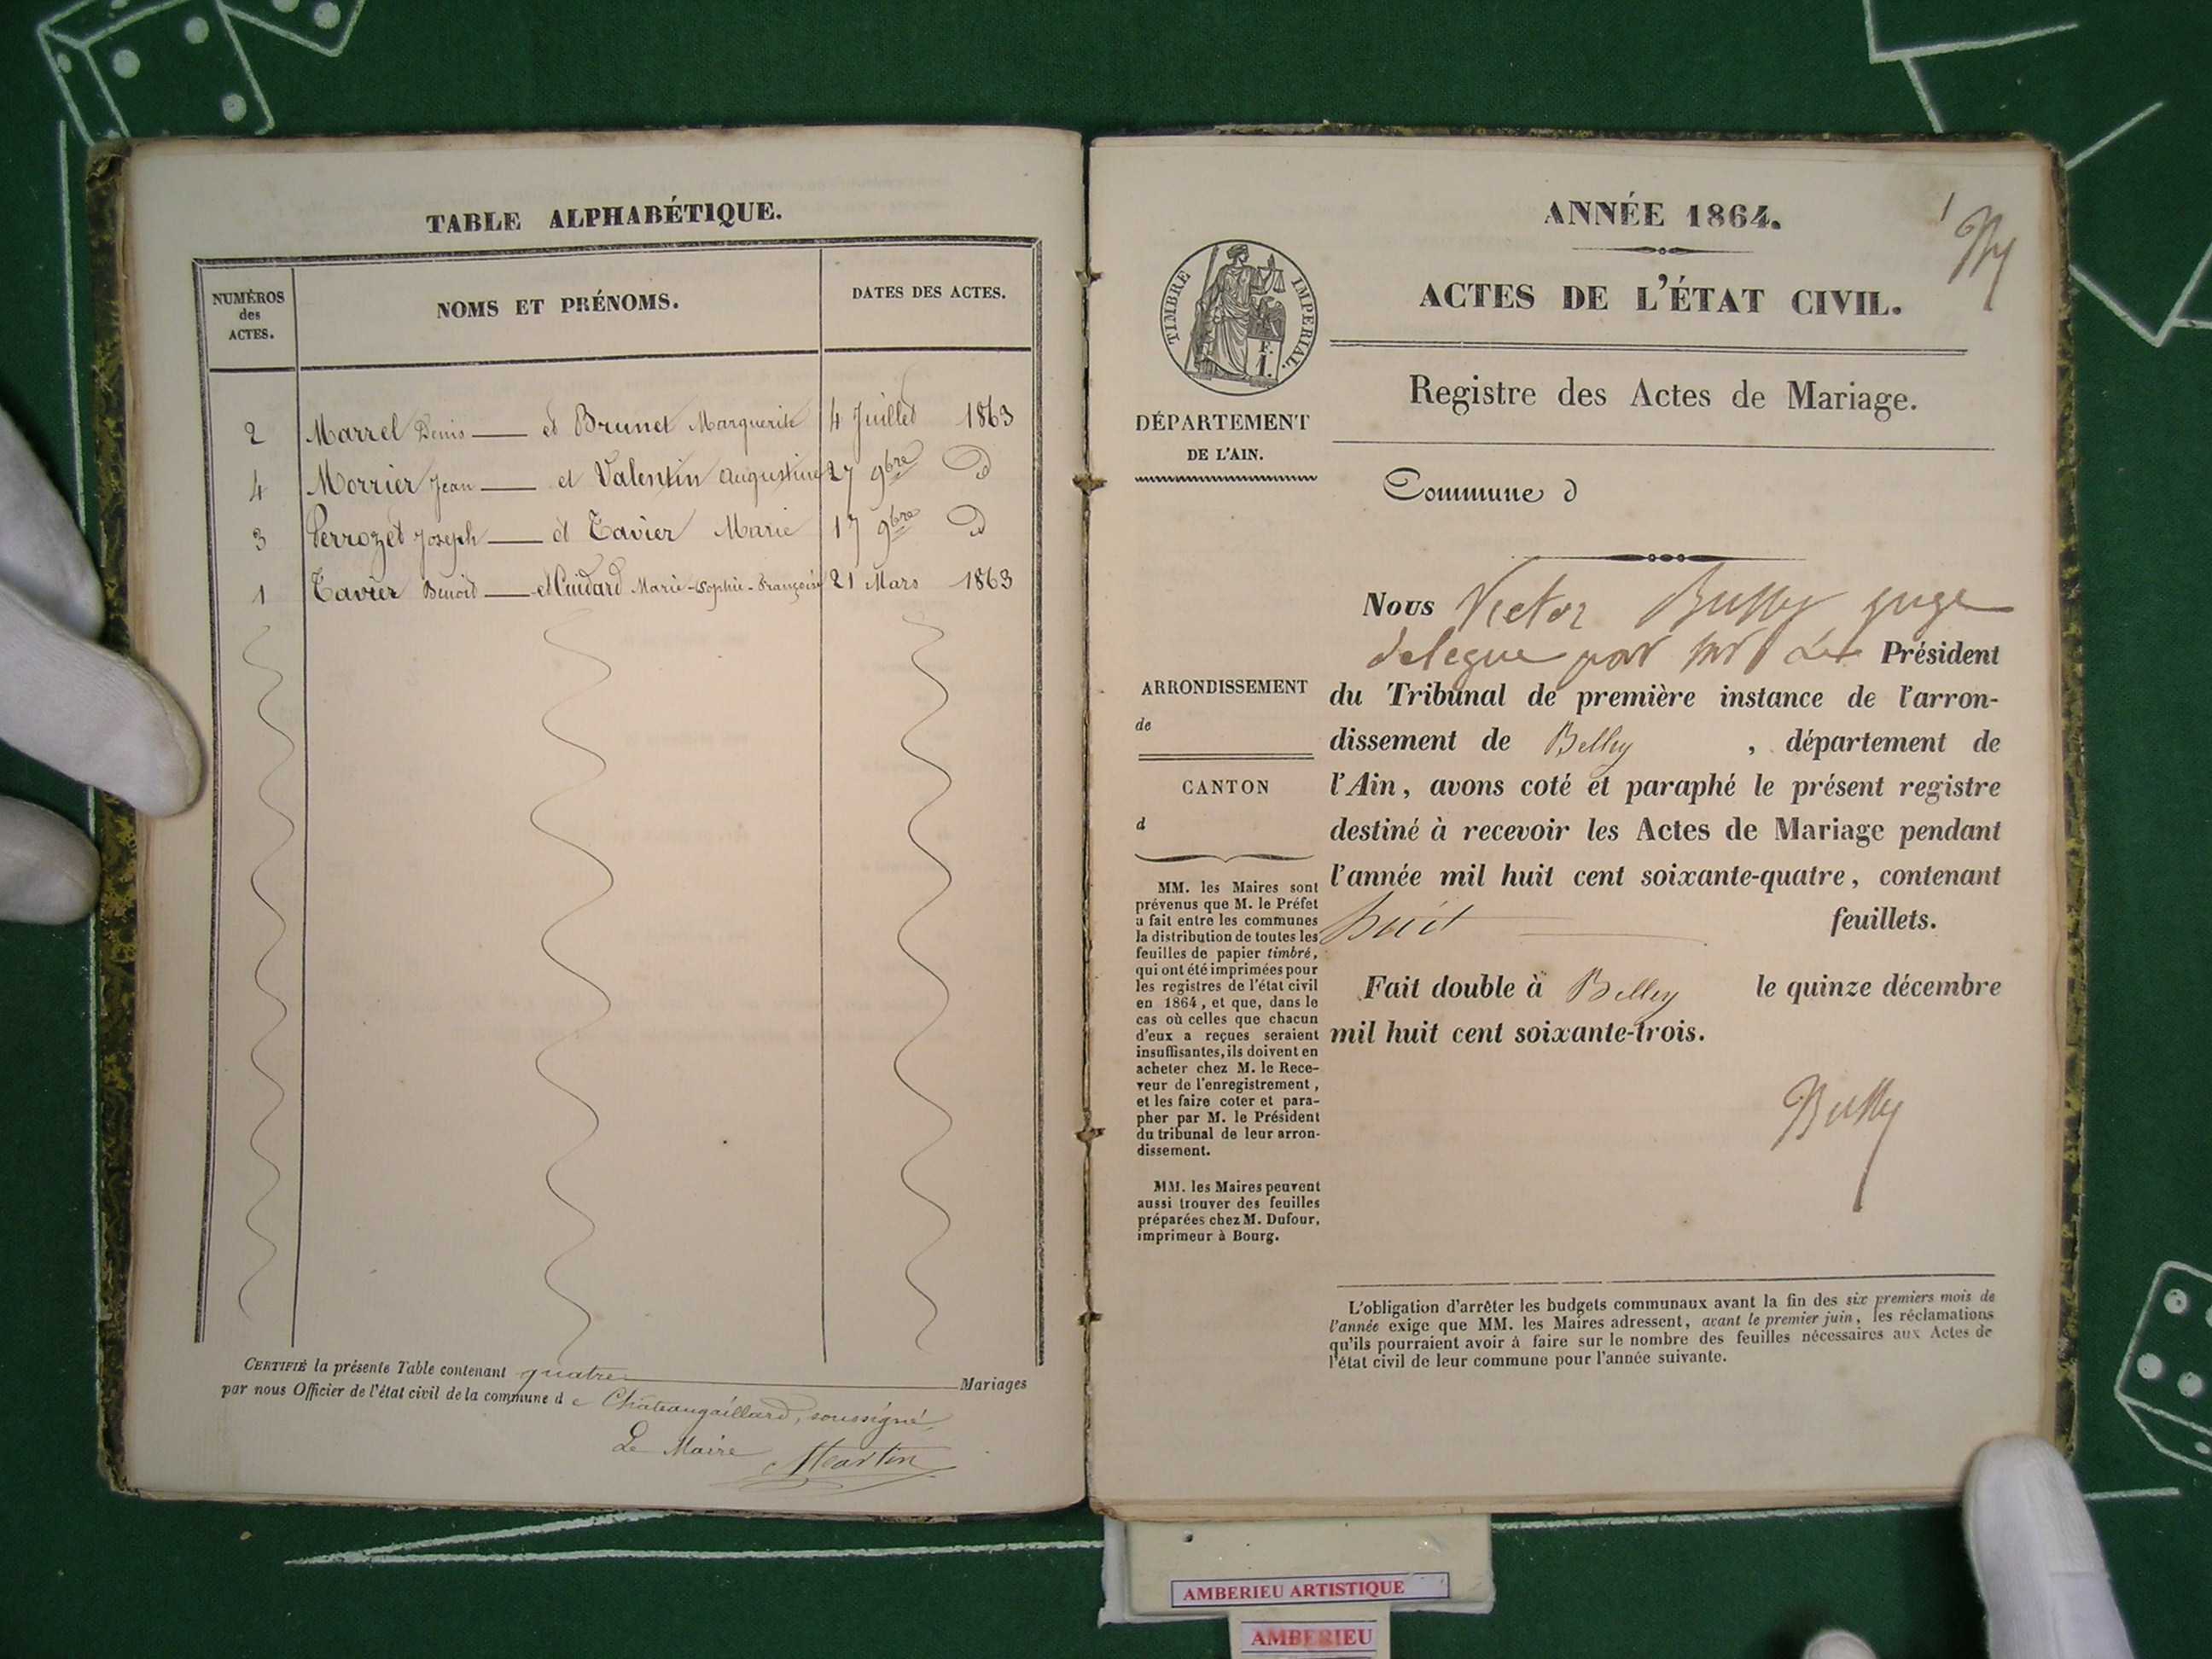 TABLE ALPHABÉTIQUE.
NUMÉROS
des
ACTES.
NOMS ET PRÉNOMS.
DATES DES ACTES.
2 Marrel Denis — et Brunet Marguerite 4 Juillet 1863
4 Morrier Jean — et Valentin Augustine 27 9bre d
3 Perrozet Joseph — et Tavier Marie 17 9bre d
1 Tavier Benoit — et Cuidard Marie-Sophie-Françoise 21 Mars 1863
CERTIFIÉ la présente Table contenant quatre Mariages
par nous Officier de l'état civil de la commune d e Châteaugaillard, soussigné
Le Maire Martin
1
ANNÉE 1864.
ACTES DE L'ÉTAT CIVIL.
TIMBRE IMPÉRIAL.
Registre des Actes de Mariage.
DÉPARTEMENT
DE L'AIN.
Commune d
ARRONDISSEMENT
de
CANTON
d
MM. les Maires sont
prévenus que M. le Préfet
a fait entre les communes
la distribution de toutes les
feuilles de papier timbré,
qui ont été imprimées pour
les registres de l'état civil
en 1864, et que, dans le
cas où celles que chacun
d'eux a reçues seraient
insuffisantes, ils doivent en
acheter chez M. le Rece-
veur de l'enregistrement,
et les faire coter et para-
pher par M. le Président
du tribunal de leur arron-
dissement.
MM. les Maires peuvent
aussi trouver des feuilles
préparées chez M. Dufour,
imprimeur à Bourg.
Nous Victor Bussy juge
delegue par Mr Le Président
du Tribunal de première instance de l'arron-
dissement de Belley , département de
l'Ain, avons coté et paraphé le présent registre
destiné à recevoir les Actes de Mariage pendant
l'année mil huit cent soixante-quatre, contenant
huit feuillets.
Fait double à Belley le quinze décembre
mil huit cent soixante-trois.
Bussy
L'obligation d'arrêter les budgets communaux avant la fin des six premiers mois de
l'année exige que MM. les Maires adressent, avant le premier juin, les réclamations
qu'ils pourraient avoir à faire sur le nombre des feuilles nécessaires aux Actes de
l'état civil de leur commune pour l'année suivante.
AMBERIEU ARTISTIQUE
AMBERIEU